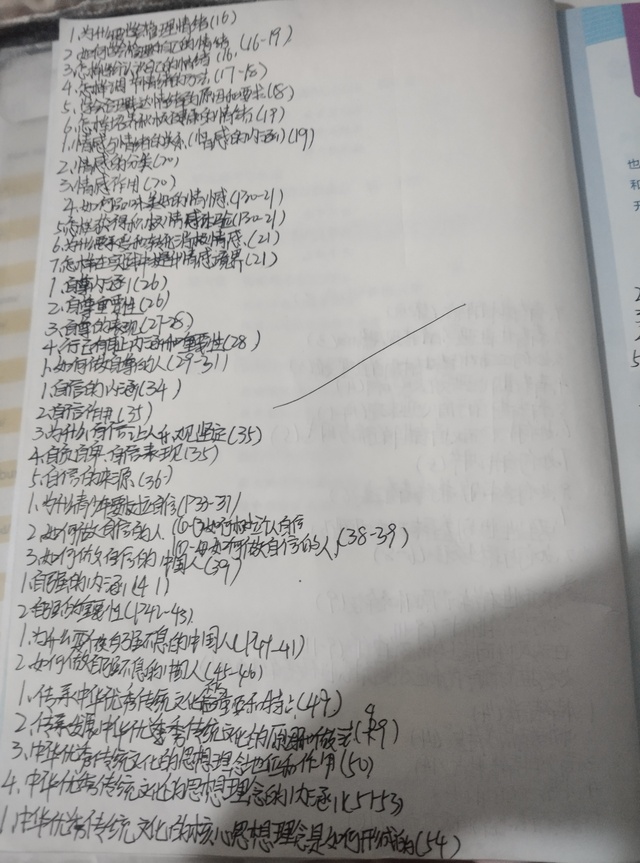 1.为什么要学管理情绪(16)
2.如何管理自己的情绪(16-19)
3.怎样辨认自己的情绪(16)
4.怎样调节情绪的方法(17-18)
5.学会合理表达情绪的原因和要求(18)
6.怎样培养积极健康的情绪(19)
1.情感与情绪的关系(情感的内涵)(19)
2.情感的分类(20)
3.情感作用(20)
4.如何 美好的情感(P20-21)
5.怎样获得积极情感体验(P20-21)
6.为什么要 和转化消极情感(21)
7.怎样在实践中提升情感境界(21)
1.自尊内涵(26)
2.自尊重要性(26)
3.自尊的表现(27-28)
4.行己有耻内涵和重要性(28)
1.如何做自尊的人(29-31)
1.自信的内涵(34)
2.自信作用(35)
3.为什么自信让人乐观坚定(35)
4.自负自卑、自信表现(35)
5.自信的来源(36)
1.为什么青少年要树立自信(P33-37)
2.如何做自信的人 ①-③如何树立自信
如何做自信的人(38-39)
3.如何做自信的中国人(39)
1.自强的内涵(41)
2.自强的重要性(P42-43)
1.为什么要做自强不息的中国人(P41-41)
2.如何做自强不息的中国人(45-46)
1.传承中华优秀传统文化 (47)
2.传承发展中华优秀传统文化的原因和做法(49)
3.中华优秀传统文化的思想理念地位和作用(50)
4.中华优秀传统文化的思想理念的内涵(51-53)
1.中华优秀传统文化的核心思想理念是如何形成的(54)
也
和
开